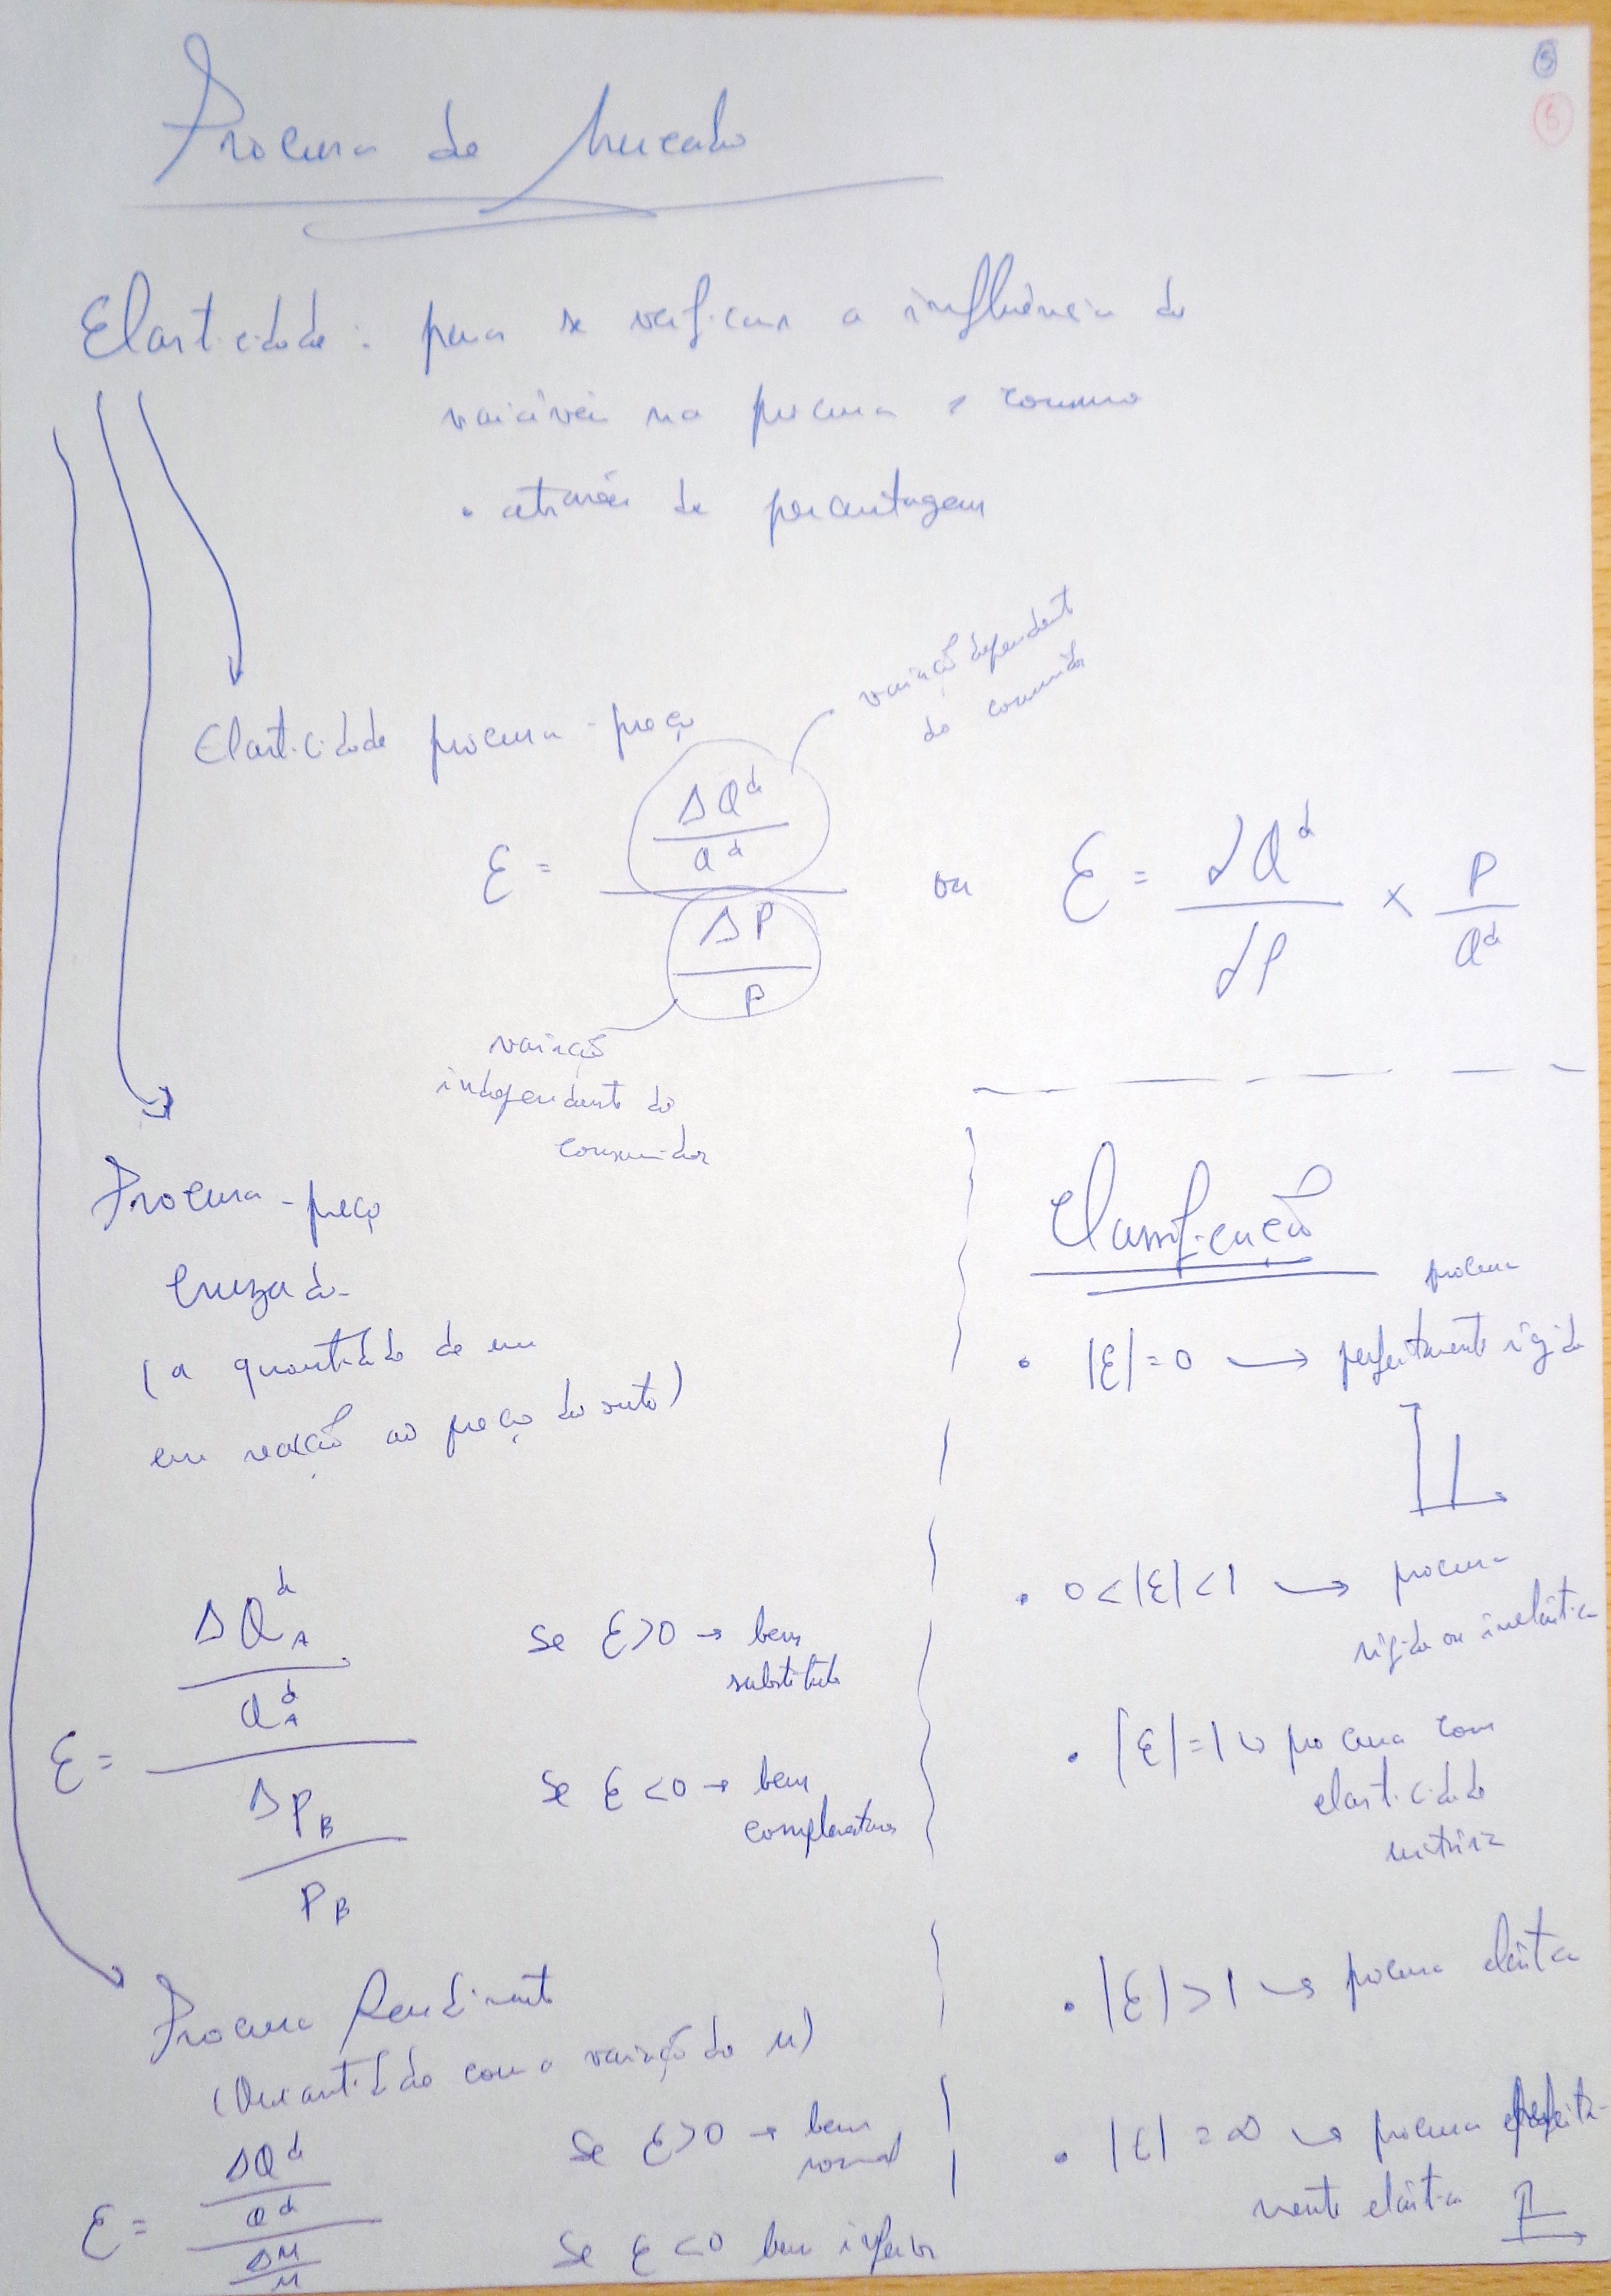 5
5
Procura de Mercado
Elasticidade: para se verificar a influência de
variáveis na procura e consumo
• através de percentagem
Elasticidade procura-preço
variação dependente
do consumidor
ε = (ΔQᵈ / Qᵈ) / (ΔP / P) ou ε = dQᵈ / dP × P / Qᵈ
variação
independente do
consumidor
Procura-preço
cruzada
(a quantidade de um
em reação ao preço do outro)
ε = (ΔQᵈ_A / Qᵈ_A) / (ΔP_B / P_B)
Se ε>0 → bem
substituto
Se ε<0 → bem
Procura Rendimento
(Quantidade com a variação do M)
ε = (ΔQᵈ / Qᵈ) / (ΔM / M)
Se ε>0 → bem
normal
Se ε<0 bem inferior
Classificação
procura
• |ε|=0 → perfeitamente rígida
• 0<|ε|<1 → procura
rígida ou inelástica
• |ε|=1 → procura com
elasticidade
unitária
• |ε|>1 → procura elástica
• |ε|=∞ → procura perfeita-
mente elástica